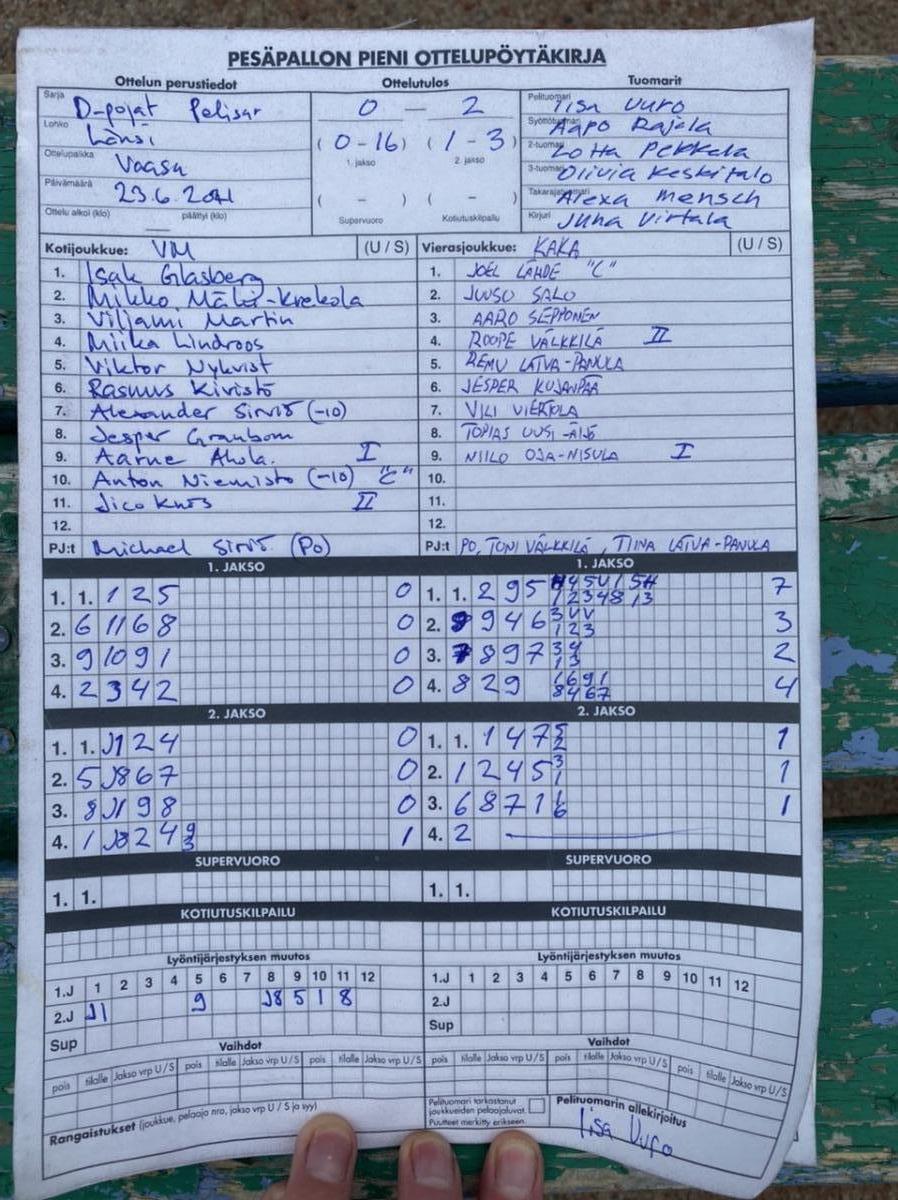 PESÄPALLON PIENI OTTELUPÖYTÄKIRJA
Ottelun perustiedot
Ottelutulos
Tuomarit
Sarja D-pojat Pelisar
Lohko Länsi
Ottelupaikka Vaasa
Päivämäärä 23.6.
Ottelu alkoi (klo) päättyi (klo)
0 — 2
(0-16) (1-3)
1. jakso 2. jakso
( - ) ( - )
Supervuoro Kotiutuskilpailu
Pelituomari Iisa Vuro
Syöttötuomari Aapo Rajala
2-tuomari Lotta Pekkala
3-tuomari Olivia Keskitalo
Takarajatuomari Alexa Mensch
Kirjuri Juha Virtala
Kotijoukkue: VM (U / S)
1. Isak Glasberg
2. Mikko Mäki-Krekola
3. Viljami Martin
4. Miika Lindroos
5. Viktor Nykvist
6. Rasmus Kivistö
7. Alexander Sirviö (-10)
8. Jesper Granbom
9. Aarne Ahola. I
10. Anton Niemistö (-10) "C"
11. Jico II
12.
PJ:t Michael Sirviö (PO)
Vierasjoukkue: KAKA (U / S)
1. JOEL LÄHDE "C"
2. JUUSO SALO
3. AARO SEPPONEN
4. ROOPE VÄLKKILÄ II
5. REMU LATVA-PANULA
6. JESPER KUJANPÄÄ
7. VILI VIERTOLA
8. TOPIAS UUSI-ÄIJÖ
9. NIILO OJA-NISULA I
10.
11.
12.
PJ:t PO, TONI VÄLKKILÄ, TIINA LATVA-PANULA
1. JAKSO
1. 1. 1 2 5 0
2. 6 11 6 8 0
3. 9 10 9 1 0
4. 2 3 4 2 0
1. JAKSO
1. 1. 2 9 5 7
2. 9 4 6 3
3. 8 9 7 2
4. 8 2 9 4
2. JAKSO
1. 1. J1 2 4 0
2. 5 J8 6 7 0
3. 8 J1 9 8 0
4. 1 J8 2 4 9 3 1
2. JAKSO
1. 1. 1 4 7 5 2 1
2. 1 2 4 5 3 1 1
3. 6 8 7 1 6 1
4. 2
SUPERVUORO
1. 1.
SUPERVUORO
1. 1.
KOTIUTUSKILPAILU
KOTIUTUSKILPAILU
Lyöntijärjestyksen muutos
1.J 1 2 3 4 5 6 7 8 9 10 11 12
2.J J1 9 J8 5 1 8
Sup
Lyöntijärjestyksen muutos
1.J 1 2 3 4 5 6 7 8 9 10 11 12
2.J
Sup
Vaihdot
pois tilalle Jakso vrp U / S pois tilalle Jakso vrp U / S pois tilalle Jakso vrp U / S
Vaihdot
pois tilalle Jakso vrp U / S pois tilalle Jakso vrp U / S pois tilalle Jakso vrp U / S
Rangaistukset (joukkue, pelaaja nro, jakso vrp U / S ja syy)
Pelituomari tarkastanut
joukkueiden pelaajaluvat.
Puutteet merkitty erikseen.
Pelituomarin allekirjoitus
Iisa Vuro